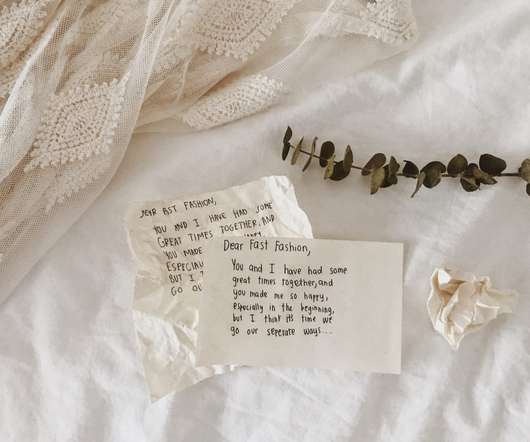 DEAR FAST FASHION,
YOU AND I HAVE HAD SOME
GREAT TIMES TOGETHER, AND
YOU MADE
ESPECIAL
BUT I T
GO OU
Dear Fast Fashion,
You and I have had some
great times together, and
you made me so happy,
especially in the beginning,
but I think its time we
go our seperate ways...